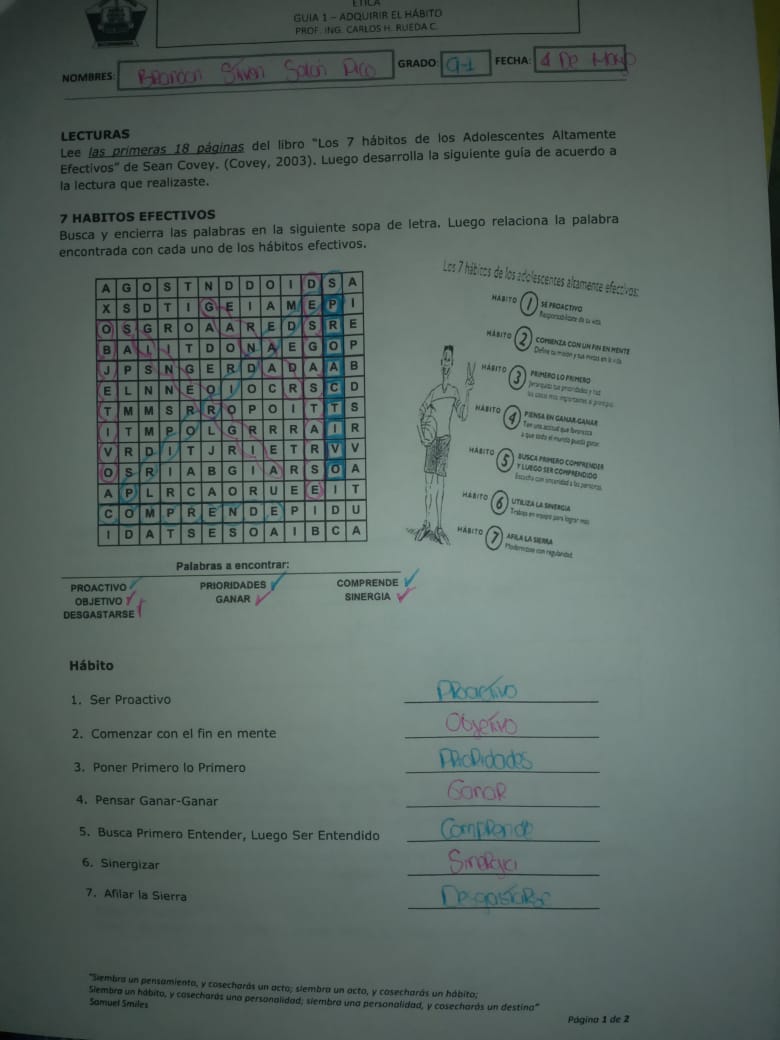 ÉTICA
GUIA 1 – ADQUIRIR EL HÁBITO
PROF. ING. CARLOS H. RUEDA C.
NOMBRES: Brandon Stiven Pico
GRADO: 9-1
FECHA: De Mayo
LECTURAS
Lee las primeras 18 páginas del libro "Los 7 hábitos de los Adolescentes Altamente
Efectivos" de Sean Covey. (Covey, 2003). Luego desarrolla la siguiente guía de acuerdo a
la lectura que realizaste.
7 HABITOS EFECTIVOS
Busca y encierra las palabras en la siguiente sopa de letra. Luego relaciona la palabra
encontrada con cada uno de los hábitos efectivos.
A G O S T N D D O I D S A
X S D T I G E I A M E P I
O S G R O A A R E D S R E
B A L I T D O N A E G O P
J P S N G E R D A D A A B
E L N N E O I O C R S C D
T M M S R R O P O I T T S
I T M P O L G R R R A I R
V R D I T J R I E T R V V
O S R I A B G I A R S O A
A P L R C A O R U E E I T
C O M P R E N D E P I D U
I D A T S E S O A I B C A
Los 7 hábitos de los adolescentes altamente efectivos:
HÁBITO 1 SE PROACTIVO
Responsabilízate de tu vida
HÁBITO 2 COMIENZA CON UN FIN EN MENTE
Define tu misión y tus metas en la vida
HÁBITO 3 PRIMERO LO PRIMERO
Jerarquiza tus prioridades y haz
las cosas más importantes al principio
HÁBITO 4 PIENSA EN GANAR-GANAR
Ten una actitud que favorezca
a que todo el mundo pueda ganar
HÁBITO 5 BUSCA PRIMERO COMPRENDER
Y LUEGO SER COMPRENDIDO
Escucha con sinceridad a las personas
HÁBITO 6 UTILIZA LA SINERGIA
Trabaja en equipo para lograr más
HÁBITO 7 AFILA LA SIERRA
Modernízate con regularidad
Palabras a encontrar:
PROACTIVO PRIORIDADES COMPRENDE
OBJETIVO GANAR SINERGIA
DESGASTARSE
Hábito
1. Ser Proactivo Proactivo
2. Comenzar con el fin en mente Objetivo
3. Poner Primero lo Primero Prioridades
4. Pensar Ganar-Ganar Ganar
5. Busca Primero Entender, Luego Ser Entendido Comprende
6. Sinergizar
7. Afilar la Sierra Desgastarse
"Siembra un pensamiento, y cosecharás un acto; siembra un acto, y cosecharás un hábito;
Siembra un hábito, y cosecharás una personalidad; siembra una personalidad, y cosecharás un destino"
Samuel Smiles
Página 1 de 2